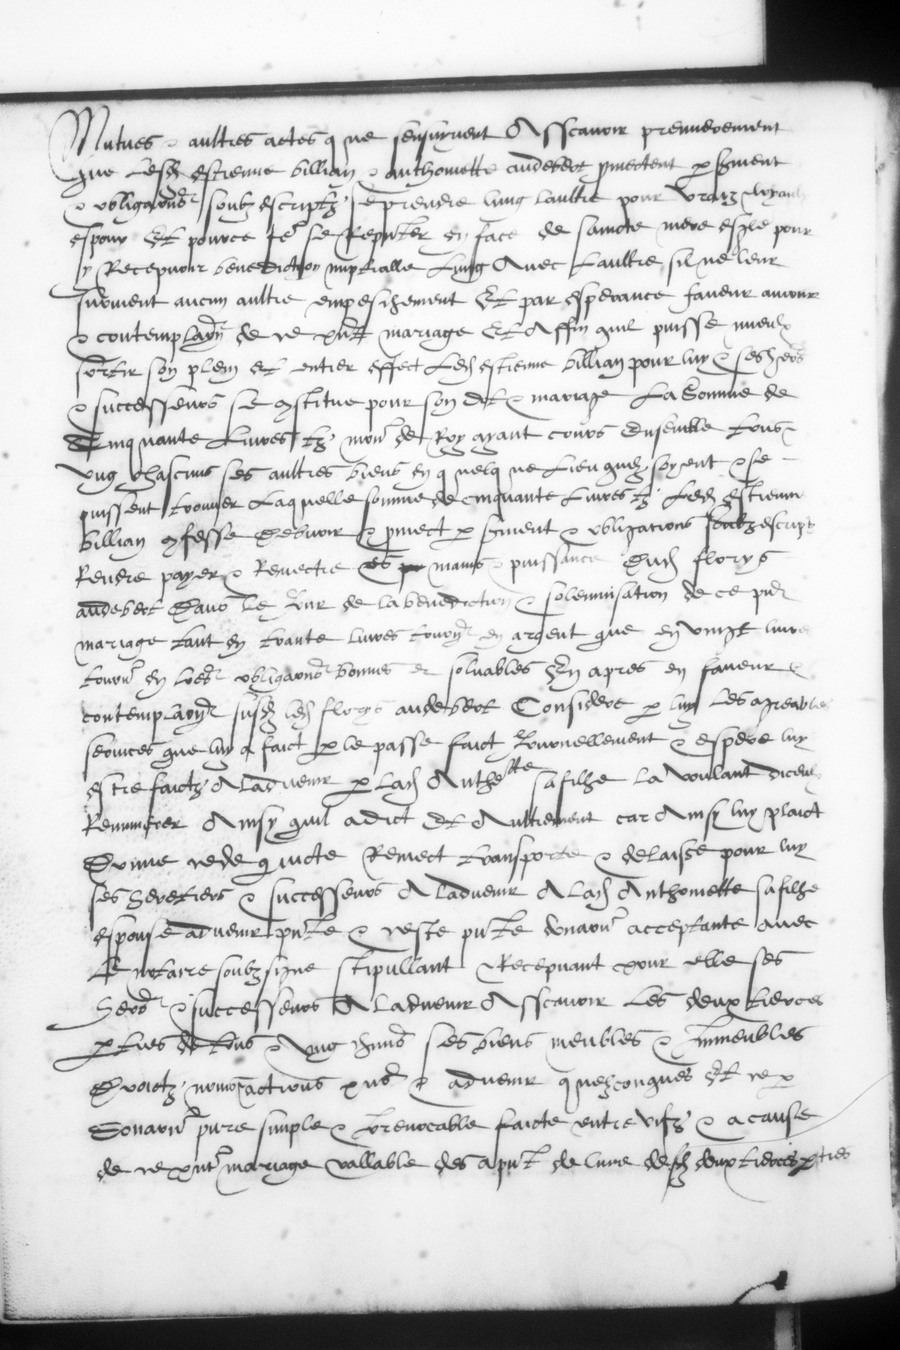 Mutues & aultres actes q ne sensuyvent Asscavoir premierement
que lesd estienne billian & anthomette audebert pmectent p serment
& obligaons soubz escriptz se prendre lung laultre pour vraiz loyaulx
espoux Et pource fe se Repnter en face de saincte mere esglise pour
y Recepvoir benediction nuptialle Lung Avec Laultre sil ne leur
survient aucun aultre empeschement Et par esperance faveur amour
& contemplaon de ce pnt mariage Et Affin quil puisse mieulx
sortir son plein et entier effect Led estienne billian pour luy & ses hers
& successeurs se constitue pour son dot & mariage La Somme de
Cinquante Livres tz mon de Roy ayant cours Ensemble tous &
ung chascuns ses aultres biens en quelque Lieu quilz soyent & se
puissent trouver Laquelle somme de cinquante Livres tz Led Estienne
billian confesse debvoir & pmect p serment & obligations soubzescript
Rendre payer & Remectre es mains & puissance dud florys
audebert davo le jour de la benediction & solemnisation de ce pnt
mariage tant en trante livres tourn en argent que en vingt livres
tourn en obligaons bonnes et solvables Et apres en faveur &
contemplaon susd led florys audebert Considere p luy Les agreables
services que luy a faict p le passe faict Journellement & espere luy
estre faictz A Ladvenir p Lad Anthotte sa filhe la voulant diceulx
Remunerer Ainsy quil a dict Et Aultrement car Ainsy luy plaict
Donne cede quicte Remect transporte & delaisse pour luy
ses heretiers & successeurs A Ladvenir A Lad Anthomette sa filhe
espouse advenir pnte & ceste pnte donaon acceptante avec
Le notaire soubzsigne stipullant & Recepvant pour elle ses
hers & successeurs A Ladvenir Asscavoir Les deux tierces
pties de tous & ung chuns ses biens meubles & Immeubles
Droictz noms actions pns & advenir quelzconques Et ce p
Donaon pure simple & Irrevocable faicte entre vifz & a cause
de ce pnt mariage vallable des a pnt de lune desd deux tierces pties